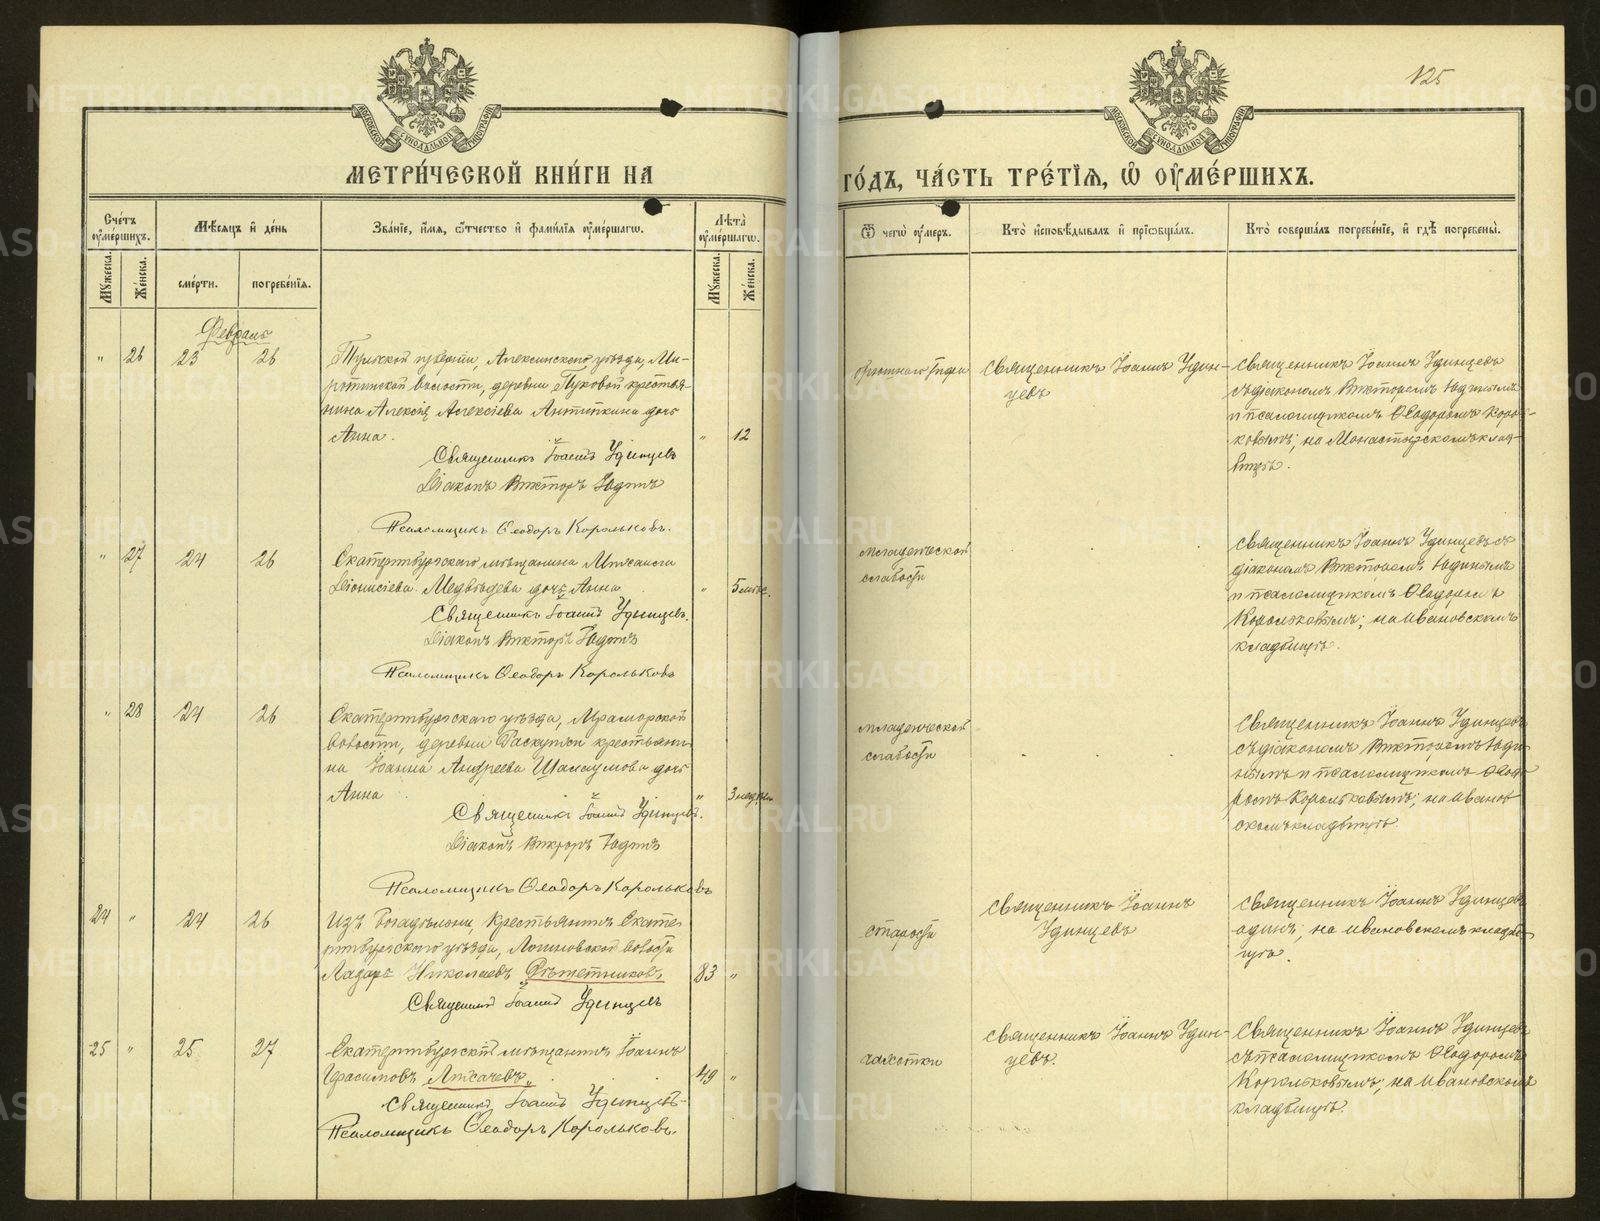 125
МОСКОВСКОЙ СѴНОДАЛЬНОЙ ТИПОГРАФІИ
МОСКОВСКОЙ СѴНОДАЛЬНОЙ ТИПОГРАФІИ
МЕТРИ́ЧЕСКОЙ КНИ́ГИ НА
ГО́ДЪ, ЧА́СТЬ ТРЕ́ТІЯ, Ѡ ОУМЕ́РШИХЪ.
Сче́тъ оумершихъ.
Мѣсяцъ и день
Зва́ніе, и́мя, о́тчество и фами́лія оуме́ршагѡ.
Лѣта оуме́ршагѡ.
Ѿ чегѡ оу́меръ.
Кто̀ исповѣ́дывалъ и пріѡбща́лъ.
Кто̀ соверша́лъ погребе́ніе, и гдѣ погребены̀.
Мужеска.
Женска.
сме́рти.
погребе́нія.
Мужеска.
Женска.
Февраль
„ 26 23 26
Тульской губерніи, Алексинскаго уѣзда, Ми-
ротинской волости, деревни Пуковой крестья-
нина Алексія Алексіева Антипкина дочь
Анна. „ 12
Священникъ Іоаннъ Удинцевъ
Діаконъ Викторъ Юдинъ
Псаломщикъ Ѳеодоръ Корольковъ.
брюшного тифа
Священникъ Іоаннъ Удин-
цевъ
Священникъ Іоаннъ Удинцевъ
съ діакономъ Викторомъ Юдинымъ
и псаломщикомъ Ѳеодоромъ Король-
ковымъ; на Монастырскомъ клад-
бищѣ.
„ 27 24 26
Екатеринбургскаго мѣщанина Михаила
Діонисіева Медвѣдева дочь Анна „ 5 мѣс.
Священникъ Іоаннъ Удинцевъ.
Діаконъ Викторъ Юдинъ
Псаломщикъ Ѳеодоръ Корольковъ
младенческой
слабости
Священникъ Іоаннъ Удинцевъ съ
діакономъ Викторомъ Юдинымъ
и псаломщикомъ Ѳеодоромъ
Корольковымъ; на Ивановскомъ
кладбищѣ.
„ 28 24 26
Екатеринбургскаго уѣзда, Мраморской
волости, деревни Раскуихи крестьяни-
на Іоанна Андреева Шалаумова дочь
Анна „ 3 недѣли
Священникъ Іоаннъ Удинцевъ.
Діаконъ Викторъ Юдинъ
Псаломщикъ Ѳеодоръ Корольковъ
младенческой
слабости
Священникъ Іоаннъ Удинцевъ
съ діакономъ Викторомъ Юди-
нымъ и псаломщикомъ Ѳеодо-
ромъ Корольковымъ; на Иванов-
скомъ кладбищѣ.
24 „ 24 26
Изъ богадѣльни, крестьянинъ Екате-
ринбургскаго уѣзда, Логиновской волости
Лазарь Николаевъ Рѣшетниковъ, 83 „
Священникъ Іоаннъ Удинцевъ
старости
Священникъ Іоаннъ
Удинцевъ
Священникъ Іоаннъ Удинцевъ
одинъ; на Ивановскомъ кладби-
щѣ.
25 „ 25 27
Екатеринбургскій мѣщанинъ Іоаннъ
Герасимовъ Лихачевъ 49 „
Священникъ Іоаннъ Удинцевъ.
Псаломщикъ Ѳеодоръ Корольковъ.
чахотки
Священникъ Іоаннъ Удин-
цевъ.
Священникъ Іоаннъ Удинцевъ
съ псаломщикомъ Ѳеодоромъ
Корольковымъ; на Ивановскомъ
кладбищѣ.
METRIKI.GASO-URAL.RU